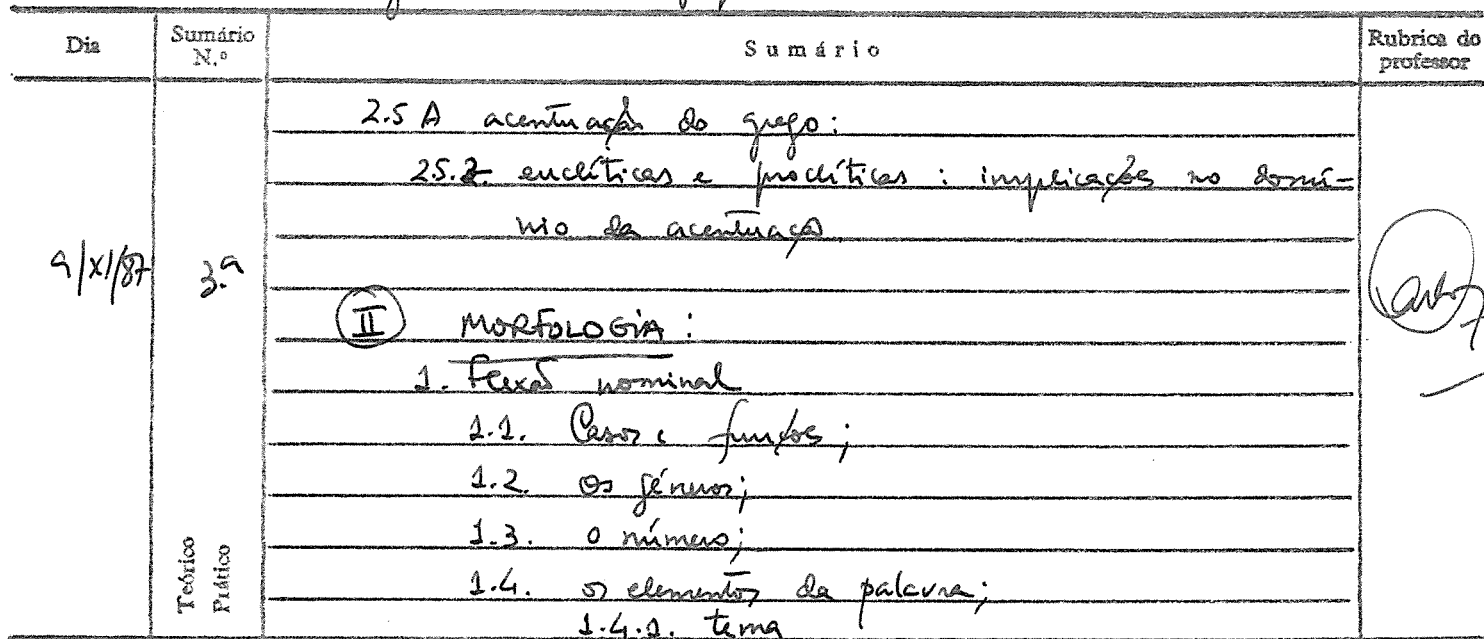 Dia
Sumário
N.º
Sumário
Rubrica do
professor
2.5 A acentuação do grego:
2.5.2. enclíticas e proclíticas : implicações no domí-
nio da acentuação.
9/XI/87
3.ª
II MORFOLOGIA :
1. Flexão nominal
1.1. Casos e funções;
1.2. Os géneros;
1.3. o número;
1.4. os elementos da palavra;
1.4.1. tema
Teórico
Prático